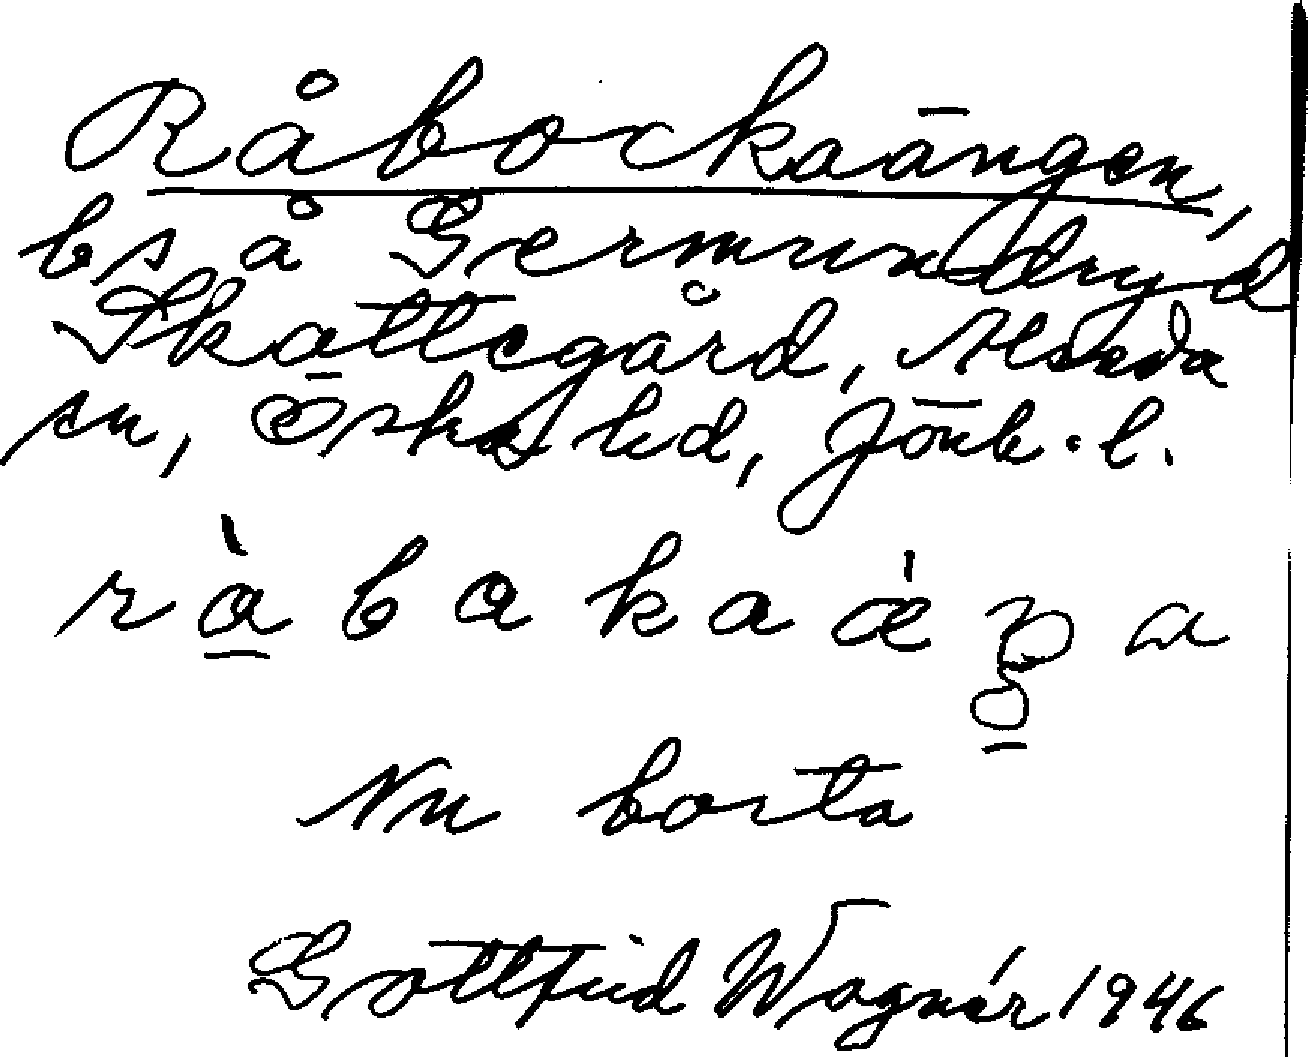 Råbockaängen,
bs å Germundryd
Skattegård, Alseda
sn, Östra hd, Jönk. l.
Nu borta
Gottfrid Wagnér 1946